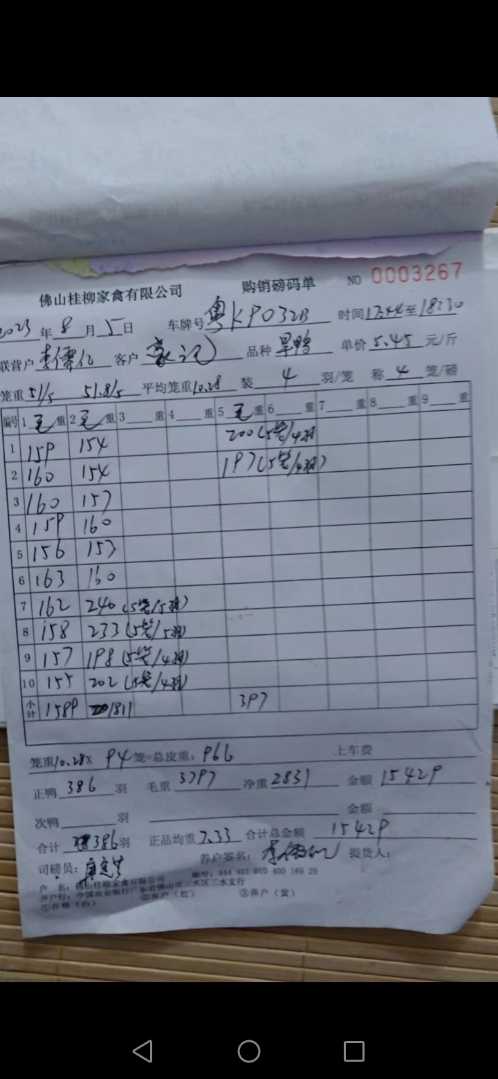 佛山桂柳家禽有限公司 购销磅码单 NO 0003267
2023年8月5日 车牌号粤KP032B 时间17:44至18:30
联营户 客户 品种旱鸭 单价5.45元/斤
笼重51/5 51.8/5 平均笼重10.28 装4羽/笼 称4笼/磅
编号 1毛重 2毛重 3重 4重 5毛重 6重 7重 8重 9重
1 159 154 200(5笼/4羽)
2 160 154 197(5笼/4羽)
3 160 157
4 159 160
5 156 153
6 163 160
7 162 240(5笼/5羽)
8 158 233(5笼/5羽)
9 157 198(5笼/4羽)
10 155 202(5笼/4羽)
小计 1589 1811 397
笼重10.28×94笼=总皮重:966 上车费
正鸭386羽 毛重3797 净重2831 金额15429
次鸭羽 金额
合计386羽 正品均重7.33 合计总金额15429
司磅员: 养户签名: 提货人:
户 名:佛山桂柳家禽有限公司
①存根(白) ②客户(红) ③养户(黄)